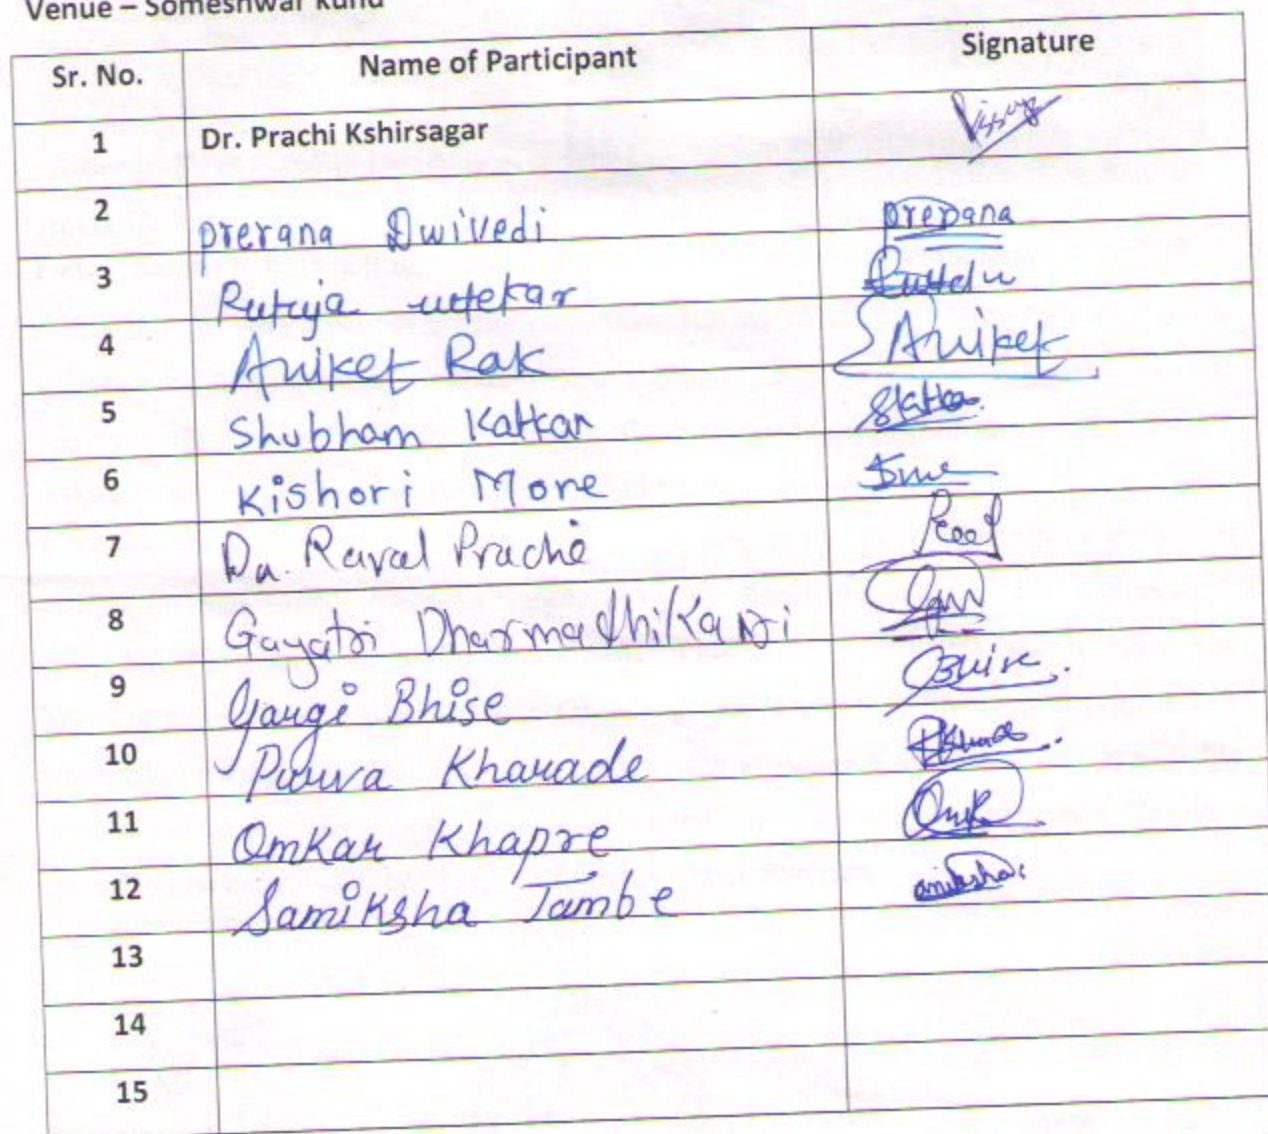 Venue – Someshwar Kund
Sr. No. Name of Participant Signature
1 Dr. Prachi Kshirsagar
2 Prerana Dwivedi prerana
3 Rutuja uttekar
4 Aniket Rak Aniket
5 Shubham Katkar
6 Kishori More
7 Dr. Raval Prachi
8 Gayatri Dharmadhikari
9 Gargi Bhise Bhise.
10 Purva Kharade
11 Omkar Khapre Omk
12 Samiksha Tambe
13
14
15